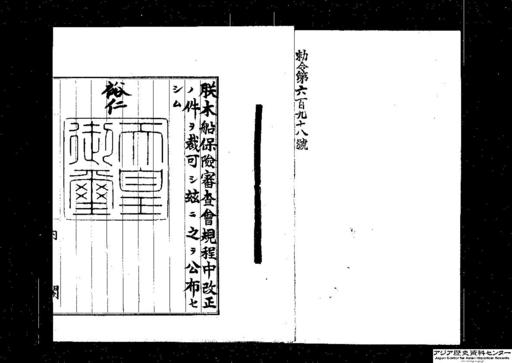 勅令第六百九十八號
朕木船保險審査會規程中改正
ノ件ヲ裁可シ玆ニ之ヲ公布セ
シム
裕仁
天皇御璽
アジア歴史資料センター
Japan Center for Asian Historical Records